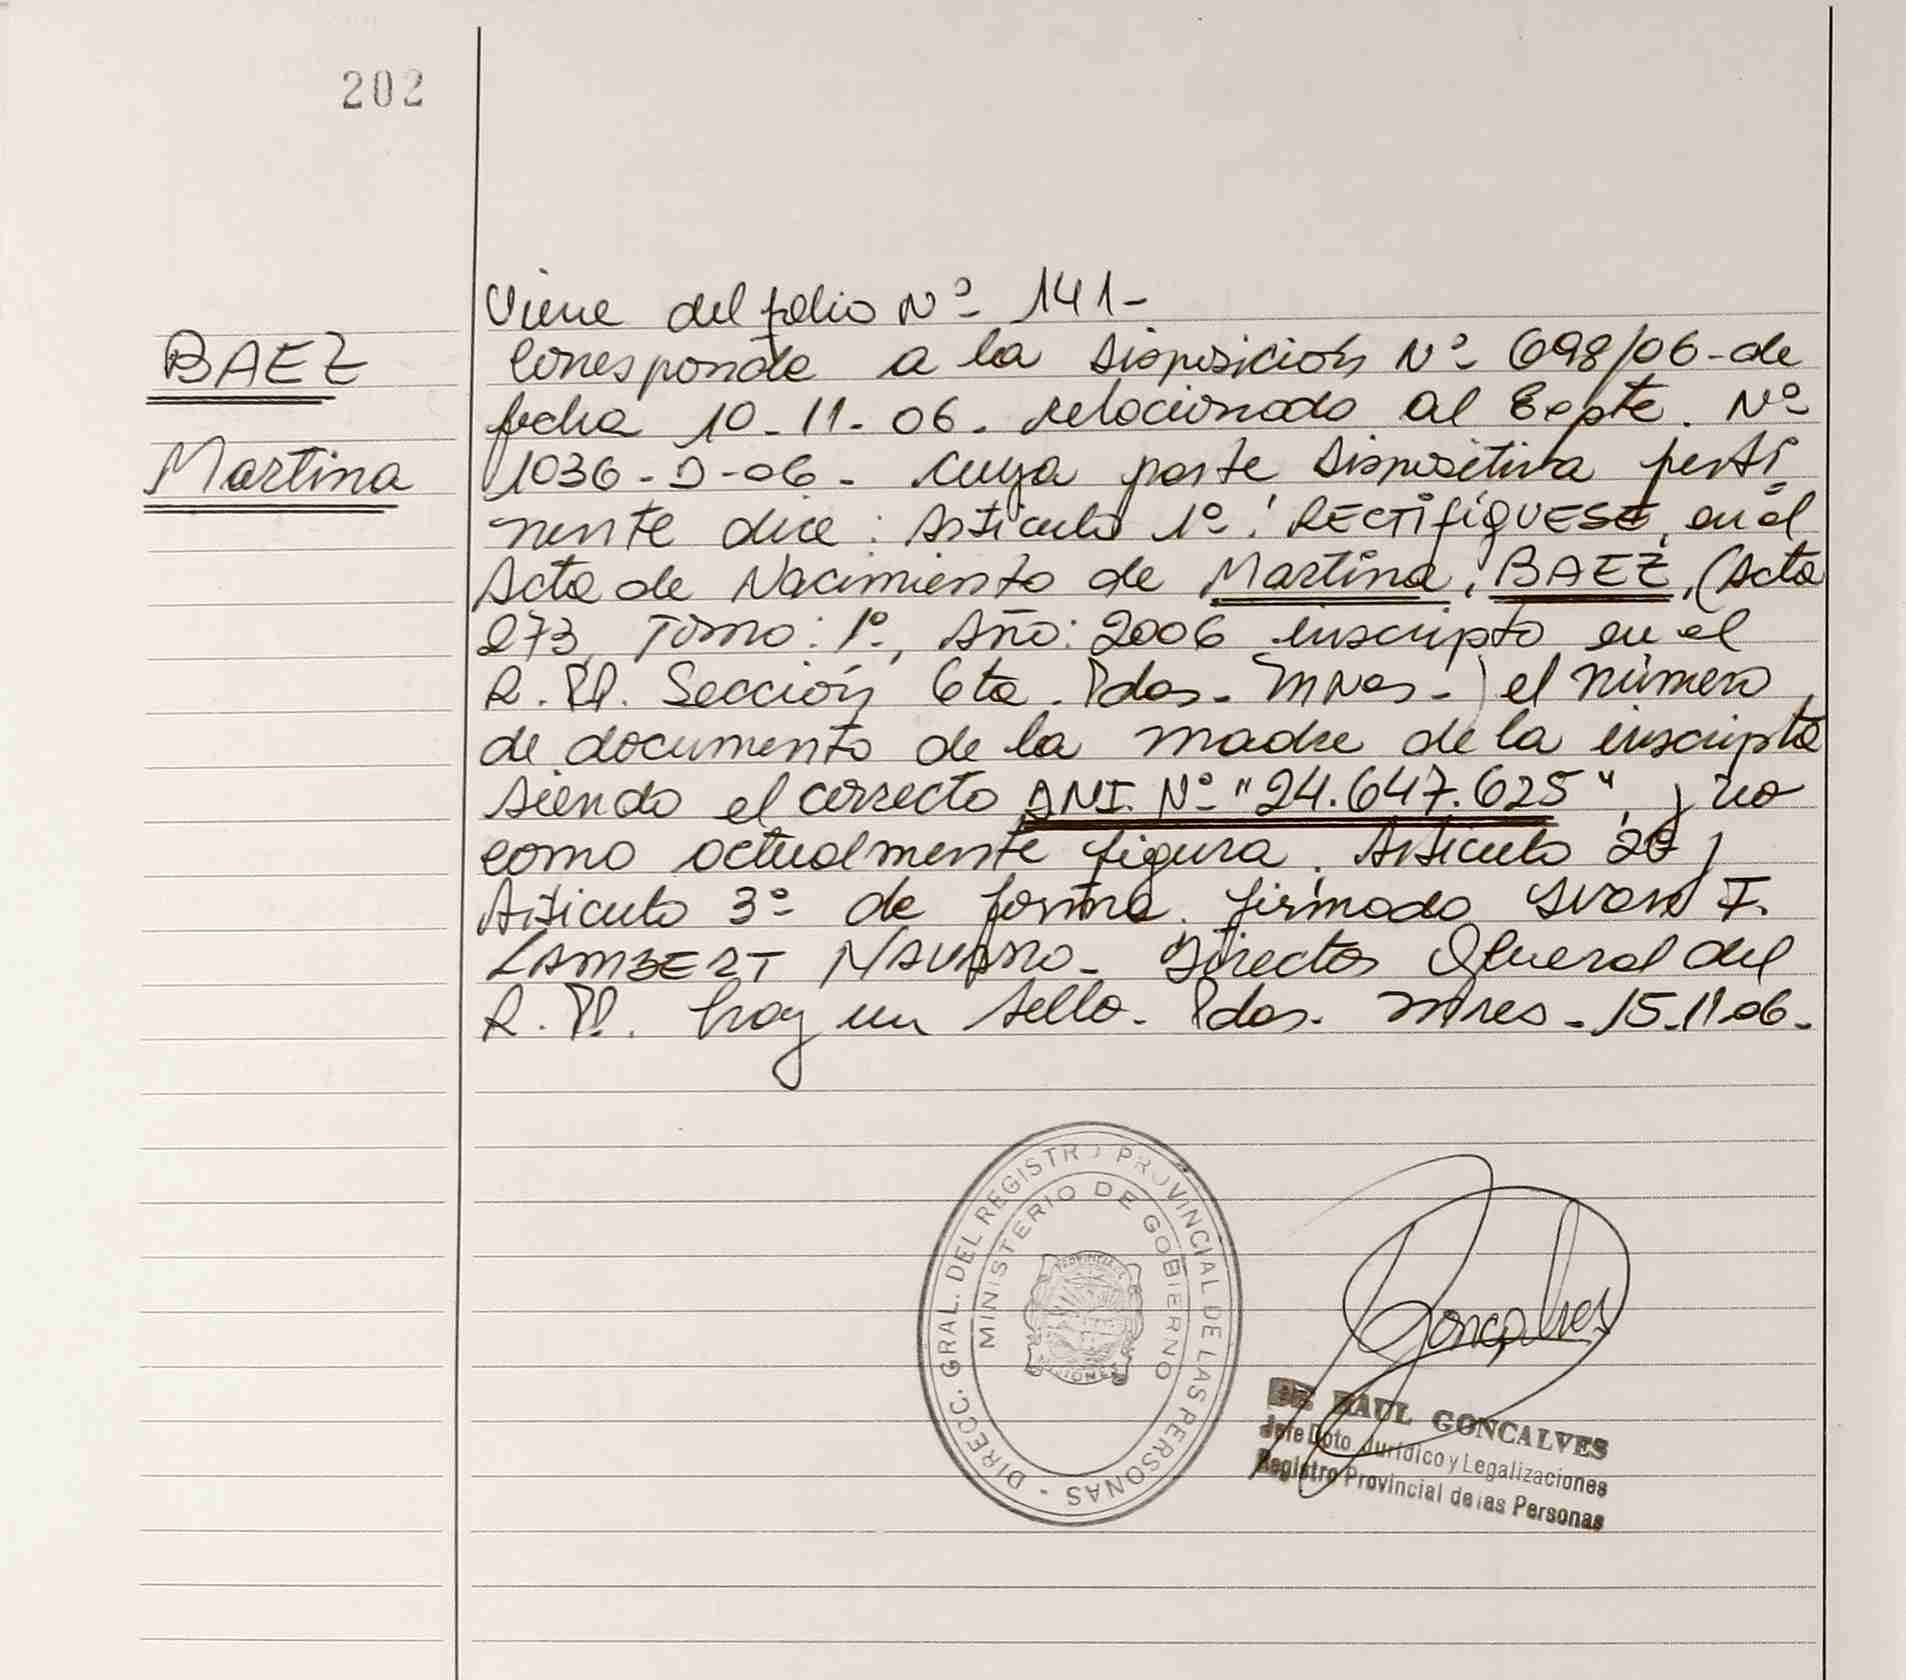 202
BAEZ
Martina
Viene del folio Nº 141-
Corresponde a la Disposición Nº 698/06-de
fecha 10-11-06. relacionado al Expte. Nº
1036-D-06- cuya parte dispositiva perti
nente dice: Artículo 1º: RECTIFÍQUESE, en el
Acta de Nacimiento de Martina, BAEZ, (Acta
273, Tomo: 1º, Año: 2006 inscripto en el
R.PP. Sección 6ta. Pdas. Mnes-) el número
de documento de la madre de la inscripta
siendo el correcto DNI. Nº "24.647.625", y no
como actualmente figura. Artículo 2º y
Artículo 3º de forma. firmado Ivan F.
LAMBERT NAVARRO- Director General del
R.PP. hay un sello. Pdas. Mnes-15-11-06-
DIRECC. GRAL. DEL REGISTRO PROVINCIAL DE LAS PERSONAS -
MINISTERIO DE GOBIERNO
PROVINCIA
MISIONES
Goncalves
Dr. RAUL GONCALVES
Jefe Dpto Jurídico y Legalizaciones
Registro Provincial de las Personas